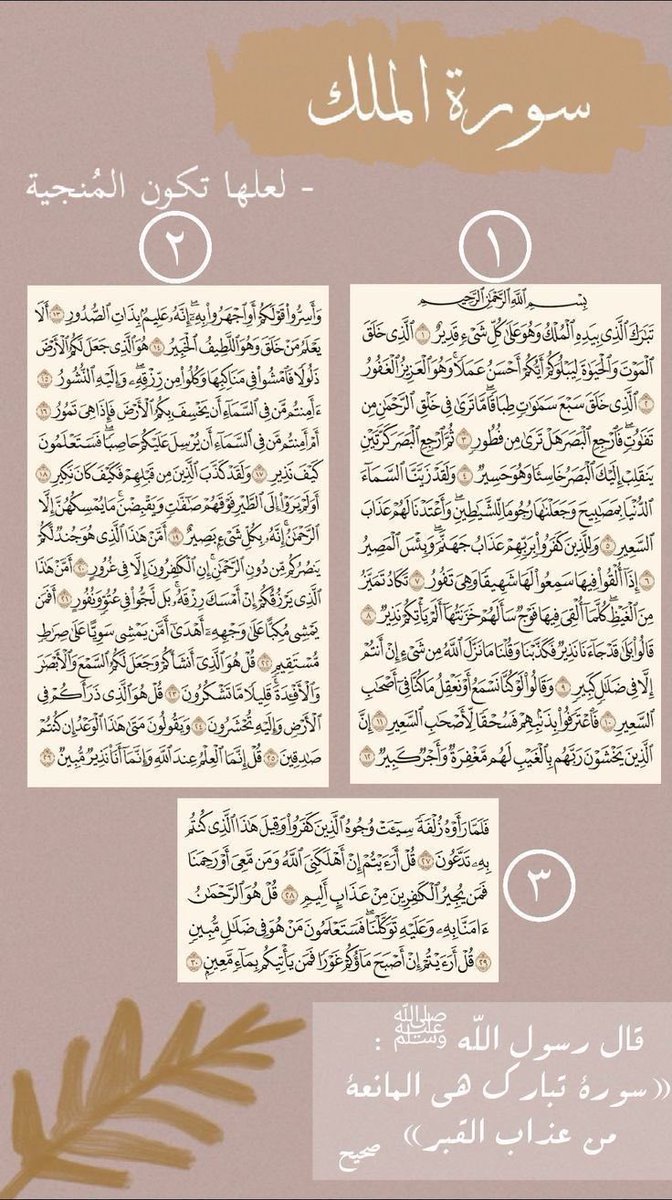 سورة الملك
- لعلها تكون المُنجية
١
بِسْمِ اللَّهِ الرَّحْمَٰنِ الرَّحِيمِ
تَبَارَكَ الَّذِي بِيَدِهِ الْمُلْكُ وَهُوَ عَلَىٰ كُلِّ شَيْءٍ قَدِيرٌ ١ الَّذِي خَلَقَ
الْمَوْتَ وَالْحَيَاةَ لِيَبْلُوَكُمْ أَيُّكُمْ أَحْسَنُ عَمَلًا وَهُوَ الْعَزِيزُ الْغَفُورُ
٢ الَّذِي خَلَقَ سَبْعَ سَمَاوَاتٍ طِبَاقًا مَّا تَرَىٰ فِي خَلْقِ الرَّحْمَٰنِ مِن
تَفَاوُتٍ فَارْجِعِ الْبَصَرَ هَلْ تَرَىٰ مِن فُطُورٍ ٣ ثُمَّ ارْجِعِ الْبَصَرَ كَرَّتَيْنِ
يَنقَلِبْ إِلَيْكَ الْبَصَرُ خَاسِئًا وَهُوَ حَسِيرٌ ٤ وَلَقَدْ زَيَّنَّا السَّمَاءَ
الدُّنْيَا بِمَصَابِيحَ وَجَعَلْنَاهَا رُجُومًا لِّلشَّيَاطِينِ وَأَعْتَدْنَا لَهُمْ عَذَابَ
السَّعِيرِ ٥ وَلِلَّذِينَ كَفَرُوا بِرَبِّهِمْ عَذَابُ جَهَنَّمَ وَبِئْسَ الْمَصِيرُ
٦ إِذَا أُلْقُوا فِيهَا سَمِعُوا لَهَا شَهِيقًا وَهِيَ تَفُورُ ٧ تَكَادُ تَمَيَّزُ
مِنَ الْغَيْظِ كُلَّمَا أُلْقِيَ فِيهَا فَوْجٌ سَأَلَهُمْ خَزَنَتُهَا أَلَمْ يَأْتِكُمْ نَذِيرٌ ٨
قَالُوا بَلَىٰ قَدْ جَاءَنَا نَذِيرٌ فَكَذَّبْنَا وَقُلْنَا مَا نَزَّلَ اللَّهُ مِن شَيْءٍ إِنْ أَنتُمْ
إِلَّا فِي ضَلَالٍ كَبِيرٍ ٩ وَقَالُوا لَوْ كُنَّا نَسْمَعُ أَوْ نَعْقِلُ مَا كُنَّا فِي أَصْحَابِ
السَّعِيرِ ١٠ فَاعْتَرَفُوا بِذَنبِهِمْ فَسُحْقًا لِّأَصْحَابِ السَّعِيرِ ١١ إِنَّ
الَّذِينَ يَخْشَوْنَ رَبَّهُم بِالْغَيْبِ لَهُم مَّغْفِرَةٌ وَأَجْرٌ كَبِيرٌ ١٢
٢
وَأَسِرُّوا قَوْلَكُمْ أَوِ اجْهَرُوا بِهِ إِنَّهُ عَلِيمٌ بِذَاتِ الصُّدُورِ ١٣ أَلَا
يَعْلَمُ مَنْ خَلَقَ وَهُوَ اللَّطِيفُ الْخَبِيرُ ١٤ هُوَ الَّذِي جَعَلَ لَكُمُ الْأَرْضَ
ذَلُولًا فَامْشُوا فِي مَنَاكِبِهَا وَكُلُوا مِن رِّزْقِهِ وَإِلَيْهِ النُّشُورُ ١٥
ءَأَمِنتُم مَّن فِي السَّمَاءِ أَن يَخْسِفَ بِكُمُ الْأَرْضَ فَإِذَا هِيَ تَمُورُ ١٦
أَمْ أَمِنتُم مَّن فِي السَّمَاءِ أَن يُرْسِلَ عَلَيْكُمْ حَاصِبًا فَسَتَعْلَمُونَ
كَيْفَ نَذِيرِ ١٧ وَلَقَدْ كَذَّبَ الَّذِينَ مِن قَبْلِهِمْ فَكَيْفَ كَانَ نَكِيرِ ١٨
أَوَلَمْ يَرَوْا إِلَى الطَّيْرِ فَوْقَهُمْ صَافَّاتٍ وَيَقْبِضْنَ مَا يُمْسِكُهُنَّ إِلَّا
الرَّحْمَٰنُ إِنَّهُ بِكُلِّ شَيْءٍ بَصِيرٌ ١٩ أَمَّنْ هَٰذَا الَّذِي هُوَ جُندٌ لَّكُمْ
يَنصُرُكُم مِّن دُونِ الرَّحْمَٰنِ إِنِ الْكَافِرُونَ إِلَّا فِي غُرُورٍ ٢٠ أَمَّنْ هَٰذَا
الَّذِي يَرْزُقُكُمْ إِنْ أَمْسَكَ رِزْقَهُ بَل لَّجُّوا فِي عُتُوٍّ وَنُفُورٍ ٢١ أَفَمَن
يَمْشِي مُكِبًّا عَلَىٰ وَجْهِهِ أَهْدَىٰ أَمَّن يَمْشِي سَوِيًّا عَلَىٰ صِرَاطٍ
مُّسْتَقِيمٍ ٢٢ قُلْ هُوَ الَّذِي أَنشَأَكُمْ وَجَعَلَ لَكُمُ السَّمْعَ وَالْأَبْصَارَ
وَالْأَفْئِدَةَ قَلِيلًا مَّا تَشْكُرُونَ ٢٣ قُلْ هُوَ الَّذِي ذَرَأَكُمْ فِي
الْأَرْضِ وَإِلَيْهِ تُحْشَرُونَ ٢٤ وَيَقُولُونَ مَتَىٰ هَٰذَا الْوَعْدُ إِن كُنتُمْ
صَادِقِينَ ٢٥ قُلْ إِنَّمَا الْعِلْمُ عِندَ اللَّهِ وَإِنَّمَا أَنَا نَذِيرٌ مُّبِينٌ ٢٦
٣
فَلَمَّا رَأَوْهُ زُلْفَةً سِيئَتْ وُجُوهُ الَّذِينَ كَفَرُوا وَقِيلَ هَٰذَا الَّذِي كُنتُم
بِهِ تَدَّعُونَ ٢٧ قُلْ أَرَأَيْتُمْ إِنْ أَهْلَكَنِيَ اللَّهُ وَمَن مَّعِيَ أَوْ رَحِمَنَا
فَمَن يُجِيرُ الْكَافِرِينَ مِنْ عَذَابٍ أَلِيمٍ ٢٨ قُلْ هُوَ الرَّحْمَٰنُ
ءَامَنَّا بِهِ وَعَلَيْهِ تَوَكَّلْنَا فَسَتَعْلَمُونَ مَنْ هُوَ فِي ضَلَالٍ مُّبِينٍ
٢٩ قُلْ أَرَأَيْتُمْ إِنْ أَصْبَحَ مَاؤُكُمْ غَوْرًا فَمَن يَأْتِيكُم بِمَاءٍ مَّعِينٍ ٣٠
قال رسول اللّه ﷺ :
((سورة تبارك هى المانعة
من عذاب القبر))
صحيح